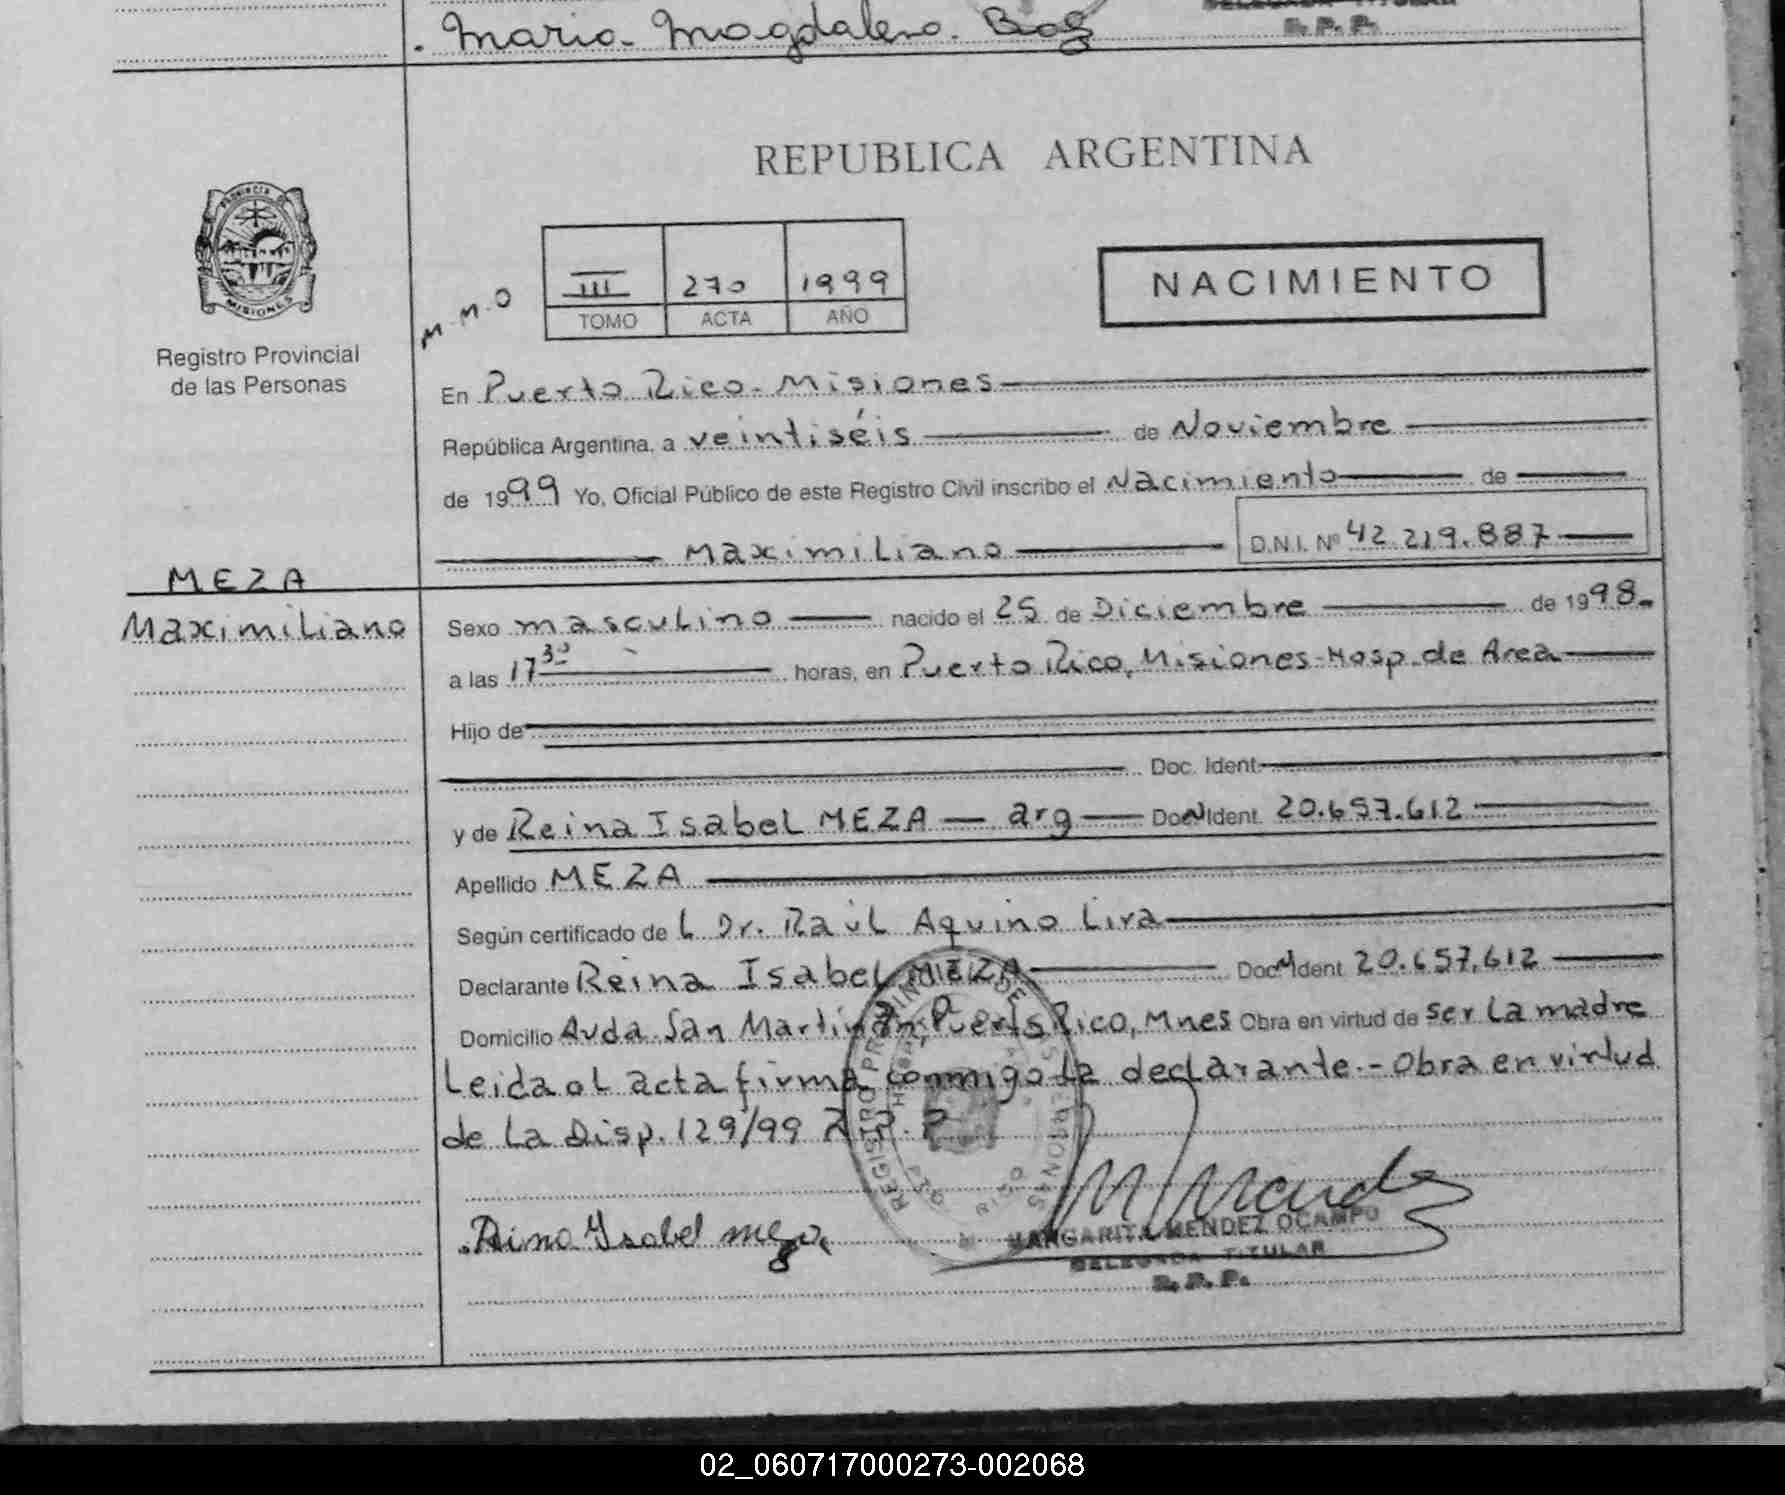 . Maria Magdalena. Baz
DELEGADA TITULAR
R. P. P.
PROVINCIA DE
MISIONES
Registro Provincial
de las Personas
REPUBLICA ARGENTINA
M.M.O
III 270 1999
TOMO ACTA AÑO
NACIMIENTO
En Puerto Rico - Misiones
República Argentina, a veintiséis de Noviembre
de 1999 Yo, Oficial Público de este Registro Civil inscribo el Nacimiento de
Maximiliano D.N.I. Nº 42.219.887
MEZA
Maximiliano
Sexo masculino nacido el 25 de Diciembre de 1998.
a las 17 30 horas, en Puerto Rico, Misiones - Hosp. de Area
Hijo de
Doc. Ident.
y de Reina Isabel MEZA — arg — Doc Ident. 20.657.612
Apellido MEZA
Según certificado de L Dr. Raúl Aquino Lira
Declarante Reina Isabel MEZA Doc Ident 20.657.612
Domicilio Avda. San Martín Puerto Rico, Mnes Obra en virtud de ser La madre
Leida el acta firma conmigo La declarante.- Obra en virtud
de La Disp. 129/99 R.P.P
REGISTRO PROVINCIAL DE LAS PERSONAS
Reina Ysabel meza
MARGARITA MENDEZ OCAMPO
DELEGADA TITULAR
R. P. P.
02_060717000273-002068